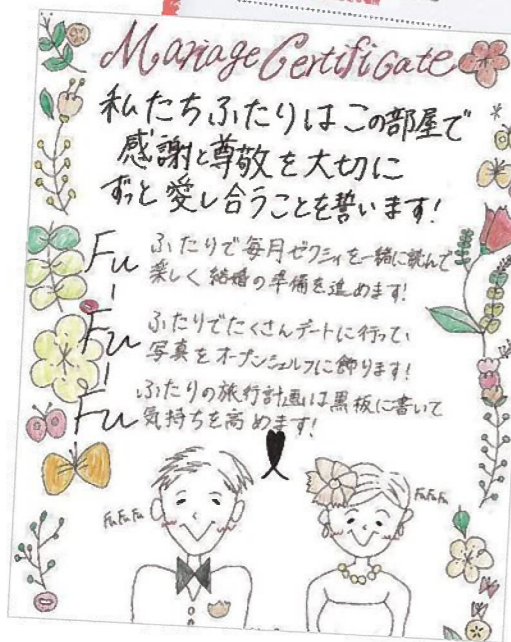 Mariage Certificate
私たちふたりはこの部屋で
感謝と尊敬を大切に
ずっと愛し合うことを誓います!
Fu ふたりで毎月ゼクシィを一緒に読んで
楽しく結婚の準備を進めます!
Fu ふたりでたくさんデートに行って、
写真をオープンシェルフに飾ります!
Fu ふたりの旅行計画は黒板に書いて
気持ちを高めます!
FuFuFu
FuFuFu